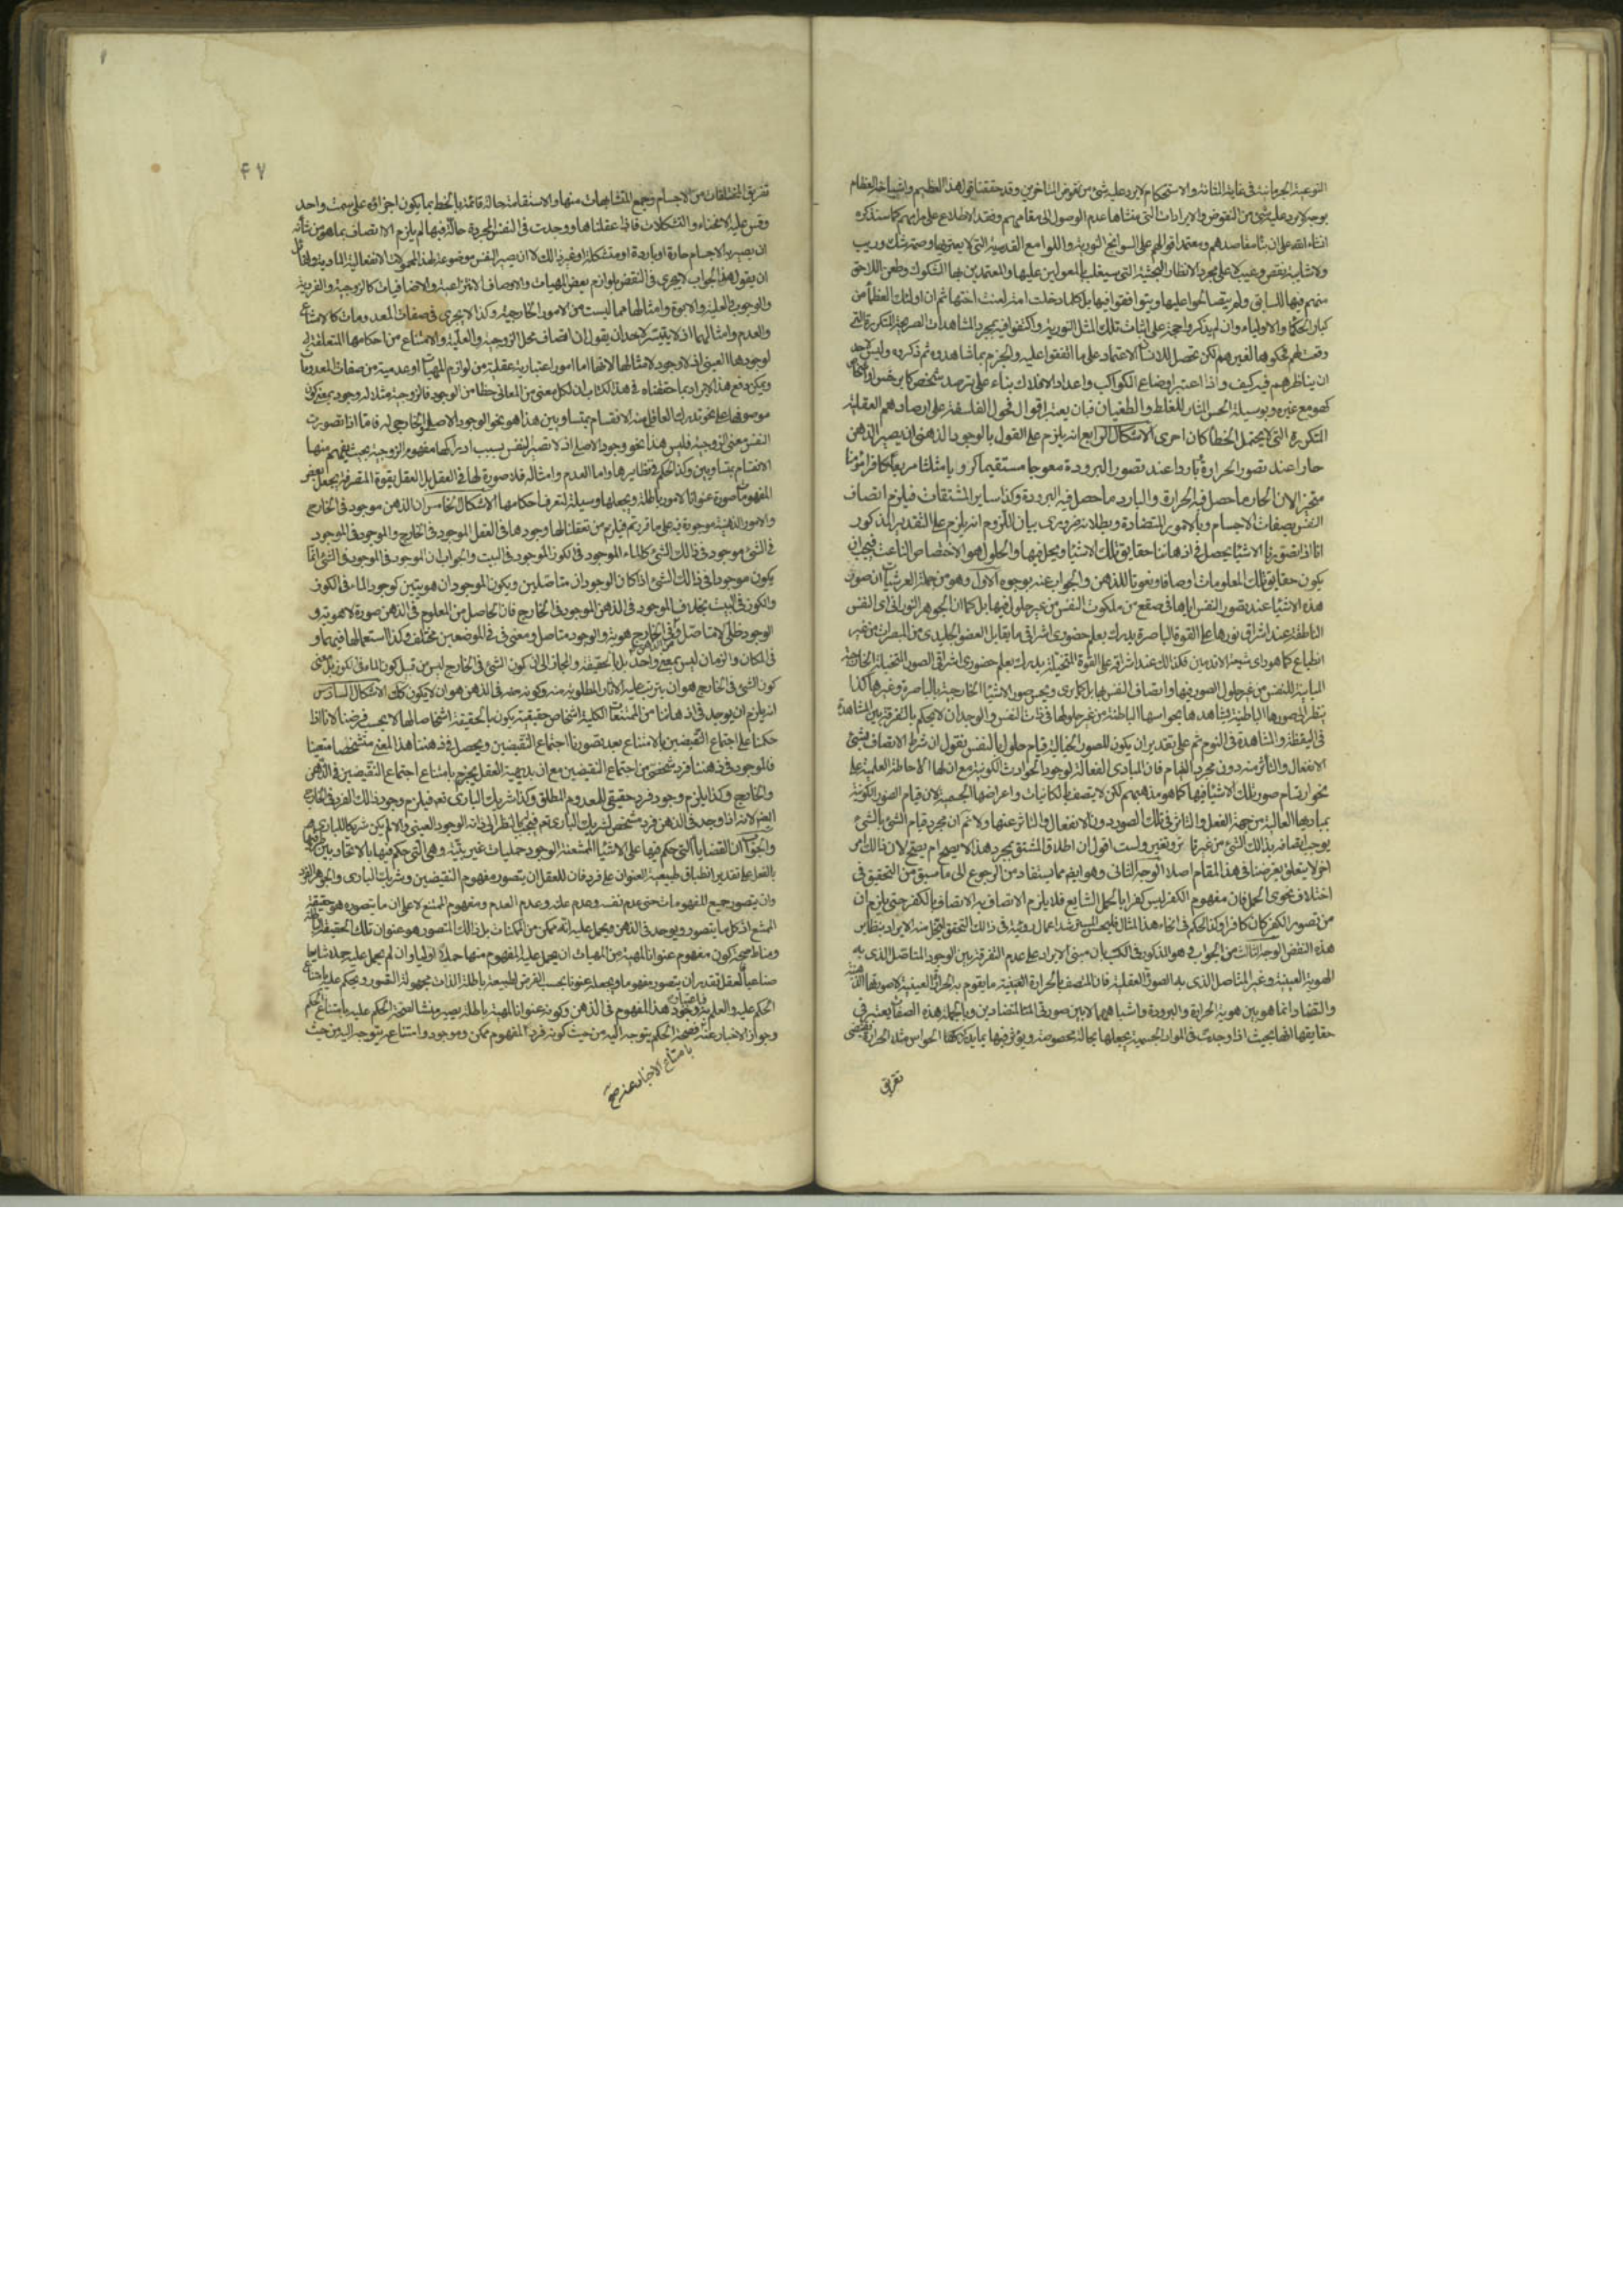 النوعية الجرمانية في غاية المتانة والاستحكام لا يرد عليه شيء من نقوض المتأخرين وقد حققنا قول هذا العظيم واشياخه العظام
بوجه لا يرد عليه شيء من النقوض والايرادات التي منشاها عدم الوصول الى مقامهم وفقد الاطلاع على مرامهم كما سنذكره
انشاء الله على ان بناء مقاصدهم ومعتمد اقوالهم على السوانح النورية واللوامع القدسية التي لا يعتريها وصمة شك وريب
ولا شايبة نقص وعيب لا على مجرد الانظار البحثية التي سيلعب بالمعولين عليها والمعتمدين بها الشكوك وطعن اللاحق
منهم فيها للسابق ولم يتصالحوا عليها ويتوافقوا فيها بل كلما دخلت امة لعنت اختها ثم ان اولئك العظماء من
كبار الحكماء والاولياء وان لم يذكروا حجة على اثبات تلك المثل النورية واكتفوا فيه بمجرد المشاهدات الصريحة المتكررة التي
وقعت لهم فحكوها لغيرهم لكن يحصل للانسان الاعتماد على ما اتفقوا عليه والجزم بما شاهدوه ثم ذكروه وليس لاحد
ان يناظرهم فيه كيف واذا اعتبر اوضاع الكواكب واعداد الافلاك بناء على ترصد شخص كابرخس او اشخاص
كهو مع غيره وبوسيلة الحس المثار للغلط والطغيان فبان يعتبر اقوال فحول الفلسفة على ارصادهم العقلية
المتكررة التي لا يحتمل الخطأ كان احرى الاشكال الرابع انه يلزم على القول بالوجود الذهني ان يصير الذهن
حارا عند تصور الحرارة باردا عند تصور البرودة معوجا مستقيما كرويا مثلثا مربعا كافرا مؤمنا
متحيزا لان الحار ما حصل فيه الحرارة والبارد ما حصل فيه البرودة وكذا ساير المشتقات فيلزم اتصاف
النفس بصفات الاجسام وبالامور المتضادة وبطلانه ضروري بيان اللزوم انه يلزم على التقدير المذكور
انا اذا تصورنا الاشياء يحصل في اذهاننا حقايق تلك الاشياء ويحل فيها والحلول هو الاختصاص الناعت فيجب ان
يكون حقايق تلك المعلومات اوصافا ونعوتا للذهن والجواب عنه بوجوه الاول وهو من جملة العرشيات ان صور
هذه الاشياء عند تصور النفس اياها في صقع من ملكوت النفس من غير حلول فيها بل كما ان الجوهر النوراني اى النفس
الناطقة عند اشراق نورها على القوة الباصرة يدرك بعلم حضوري اشراقي ما يقابل العضو الجليدي من المبصرات من غير
انطباع كما هو راى شيعة الاقدمين فكذلك عند اشراقه على القوة المتخيلة يدرك بعلم حضوري اشراقي الصور المتخيلة الخارجية
المباينة للنفس من غير حلول الصور فيها واتصاف النفس بها بل كما يرى ويحس صور الاشياء الخارجية بالباصرة وغيرها كذا
ينظر الى صورها الباطنية ويشاهدها بحواسها الباطنة من غير حلولها في ذات النفس والوجدان لا يحكم بالتفرقة بين المشاهدة
في اليقظة والمشاهدة في النوم ثم على تقدير ان يكون للصور الخيالية قيام حلولي بالنفس نقول ان شرط الاتصاف بشيء
الانفعال والتأثر منه دون مجرد القيام فان المبادى الفعالة لوجود الحوادث الكونية مع ان لها الاحاطة العلمية على
نحو ارتسام صور تلك الاشياء فيها كما هو مذهبهم لكن لا يتصف بالكائنات واعراضها الجسمية لان قيام الصور الكونية
بمباديها العالية من جهة الفعل والتاثير في تلك الصور دون الانفعال والتاثر عنها ولا نم ان مجرد قيام الشيء بالشيء
يوجب اتصافه بذلك الشيء من غير تاثر وتغير ولست اقول ان اطلاق المشتق بمجرد هذا لا يصح ام يصح لان ذلك امر
اخر لا يتعلق بغرضنا في هذا المقام اصلا الوجه الثاني وهو ايضا مما يستفاد من الرجوع الى ما سبق من التحقيق في
اختلاف نحوى الحمل فان مفهوم الكفر ليس كفرا بالحمل الشايع فلا يلزم الاتصاف به الاتصاف بالكفر حتى يلزم ان
من تصور الكفر كان كافرا وكذا الحكم في انحاء هذا المثال فليحسن المسترشد اعمال رويته في ذلك التحقيق لينحل منه الايراد بنظاير
هذه النقض الوجه الثالث من الجواب وهو المذكور في الكتب بان مبنى الايراد على عدم التفرقة بين الوجود المتاصل الذي به
الهوية العينية وغير المتاصل الذي به الصورة العقلية فان المتصف بالحرارة العينية ما يقوم به الحرارة العينية لا صورتها الذهنية
والتضاد انما هو بين هوية الحرارة والبرودة واشباههما لا بين صورتي المتضادين وبالجملة هذه الصفات يعتبر في
حقايقها انها بحيث اذا وجدت في المواد الجسمية يجعلها بحالة مخصوصة ويؤثر فيها بما يدركها الحواس مثلا الحرارة يقتضي
تفريق
۴۷
تفريق المختلفات من الاجسام وجمع المتشابهات منها والاستقامة حالة قائمة بالخط بما يكون اجزاؤه على سمت واحد
وقس عليه الانحناء والتشكلات فاذا عقلناها ووجدت في النفس المجردة حالة فيها لم يلزم الا اتصاف بما هو من شأنه
ان يصير به الاجسام حارة او باردة او متشكلة او غير ذلك لا ان يصير النفس موضوعة لهذه المحمولات الانفعالية المادية ولقائل
ان يقول هذا الجواب لا يجري في النقض بلوازم بعض المهيات والاوصاف الانتزاعية والاضافيات كالزوجية والفردية
والوجوب والعلية والابوة وامثالها مما ليست من الامور الخارجية وكذا لا يجري في صفات المعدومات كالامتناع
والعدم وامثالهما اذ لا يتيسر لاحد ان يقول ان اتصاف محل الزوجية والعلية والامتناع من احكامها المتعلقة
بوجودها العيني اذ لا وجود لامثالها لانها اما امور اعتبارية عقلية من لوازم المهيات او عدمية من صفات المعدومات
ويمكن دفع هذا الايراد بما حققناه في هذا الكتاب ان لكل معنى من المعاني حظا من الوجود فالزوجية مثلا له وجود بمعنى كون
موصوفها على نحو يدرك العاقل منه الانقسام بمتساويين هذا هو نحو الوجود الاصيل الخارجي له فاما اذا تصورت
النفس معنى الزوجية فليس هذا نحو وجود الاصيل اذ لا تصير النفس بسبب ادراكها مفهوم الزوجية بحيث يفهم منها
الانقسام بمتساويين وكذا الحكم في نظايرها واما العدم وامثاله فلا صورة لها في العقل بل العقل بقوته المتصرفة يجعل بعض
المفهومات صورة وعنوانا لامور باطلة ويجعلها وسيلة لتعرف احكامها الاشكال الخامس ان الذهن موجود في الخارج
والامور الذهنية موجودة فيه على ما قررتم فيلزم من تعقلنا لها وجودها في العقل الموجود في الخارج والموجود في الموجود
في الشيء موجود في ذلك الشيء كالماء الموجود في الكوز الموجود في البيت والجواب ان الموجود في الموجود في الشيء انما
يكون موجودا في ذلك الشيء اذا كان الوجودان متاصلين ويكون الموجودان هويتين كوجود الماء في الكوز
والكوز في البيت بخلاف الموجود في الذهن الموجود في الخارج فان الحاصل من المعلوم في الذهن صورة لا هوية و
الوجود ظلي لا متاصل ومن الذهن في الخارج هوية والوجود متاصل ومعنى في في الموضعين مختلف وكذا استعمالها فيهما و
في المكان والزمان ليس بمعنى واحد بل بالحقيقة والمجاز الى ان كون الشيء في الخارج ليس من قبيل كون الماء في الكوز بل معنى
كون الشيء في الخارج هو ان يترتب عليه الاثار المطلوبة منه وكونه منه في الذهن هو ان لا يكون كذلك الاشكال السادس
انه يلزم ان يوجد في اذهاننا من الممتنعات الكلية اشخاص حقيقية يكون بالحقيقة اشخاصا لها لا بحسب فرضنا لانا اذا
حكمنا على اجتماع النقيضين بالامتناع بعد تصورنا اجتماع النقيضين ويحصل في ذهننا هذا المعنى متشخصا متعينا
فالموجود في ذهننا فرد شخصي من اجتماع النقيضين مع ان بديهية العقل يجزم بامتناع اجتماع النقيضين في الذهن
والخارج وكذا يلزم وجود فرد حقيقي للمعدوم المطلق وكذا شريك الباري تعم فيلزم وجود ذلك الفرد في الخارج
ايضا لانه اذا وجد في الذهن فرد مشخص لشريك الباري تعم فيجب بالنظر الى ذاته الوجود العيني والا لم يكن شريكا للباري هم
والجواب ان القضايا التي حكم فيها على الاشياء الممتنعة الوجود حمليات غير بتية وهي التي حكم فيها بالاتحاد بين طرفيها
بالفعل على تقدير انطباق طبيعة العنوان على فرد فان للعقل ان يتصور مفهوم النقيضين وشريك الباري والجوهر الفرد
وان يتصور جميع المفهومات حتى عدم نفسه وعدم علته وعدم العدم ومفهوم الممتنع لا على ان ما يتصوره هو حقيقة
الممتنع اذ كل ما يتصور ويوجد في الذهن ويحمل عليه انه ممكن من الممكنات بل ذلك المتصور هو عنوان تلك الحقيقة الباطلة
ومناط صحة كون مفهوم عنوانا لمهية من المهيات ان يحمل عليه المفهوم منها حملا اوليا وان لم يحمل عليه حملا شايعا
صناعيا فللعقل بقدر ان يتصور مفهوما ويجعله عنوانا بحسب الفرض لطبيعة باطلة الذات مجهولة التصور ويحكم عليه بامتناع
الحكم عليه والعلم به وباعتبار وجود هذا المفهوم في الذهن وكونه عنوانا لمهية باطلة يصير منشأ لصحة الحكم عليه بامتناع الحكم
وجواز الاخبار عنه فصحة الحكم يتوجه اليه من حيث كونه فرد المفهوم ممكن وموجود وامتناعه يتوجه اليه من حيث
بامتناع الاخبار عنه صح